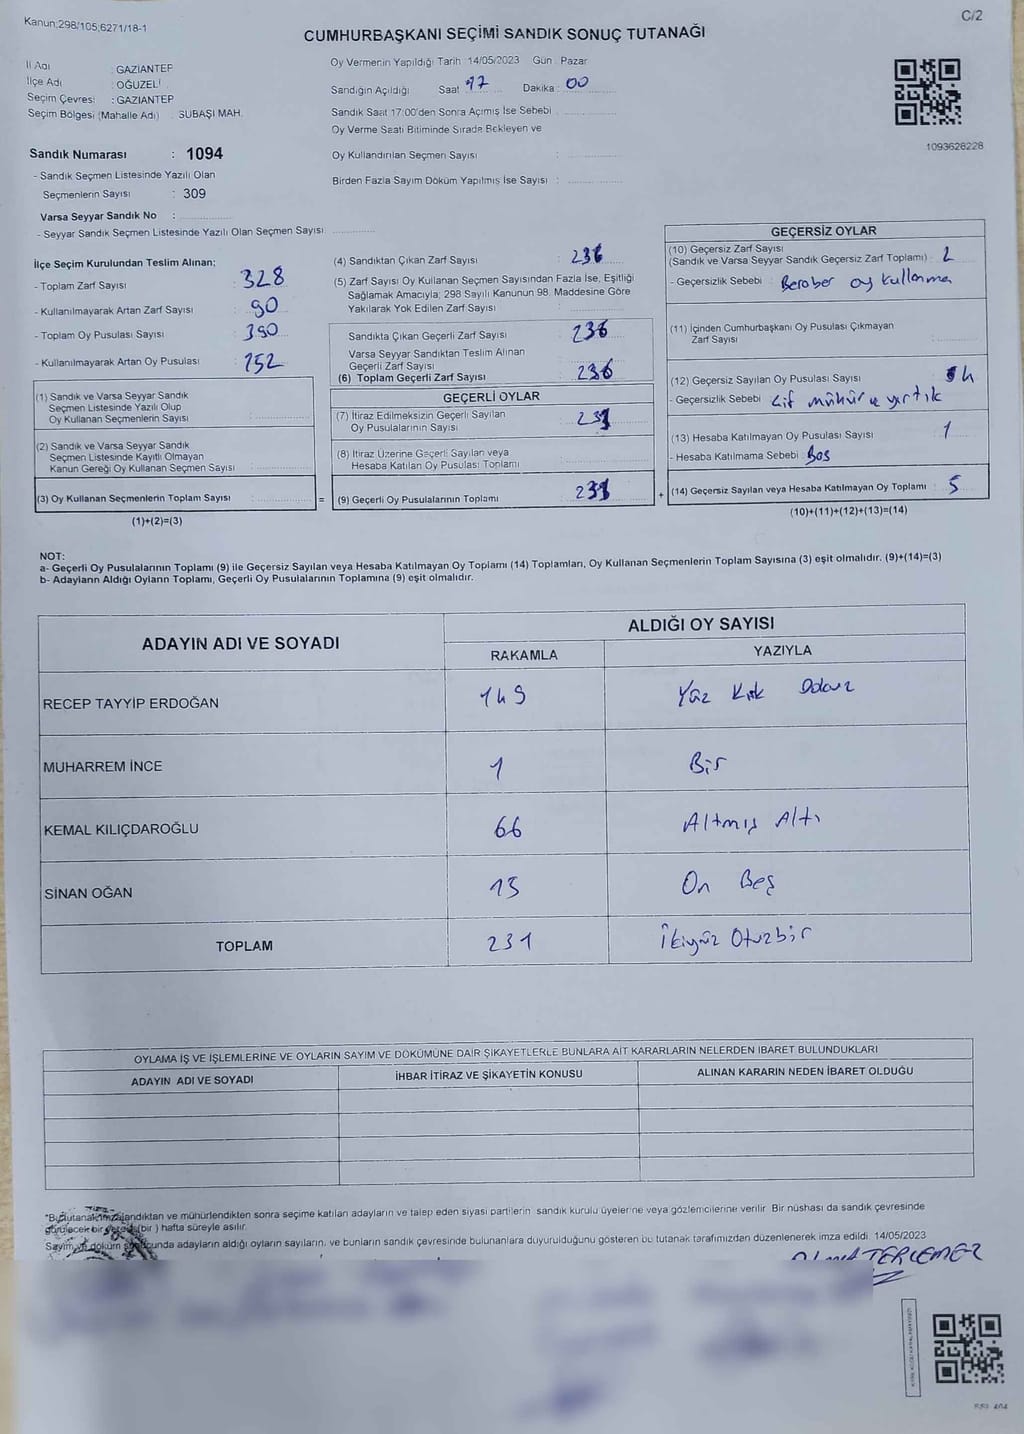 Kanun;298/105;6271/18-1
C/2
CUMHURBAŞKANI SEÇİMİ SANDIK SONUÇ TUTANAĞI
İl Adı : GAZİANTEP
İlçe Adı : OĞUZELİ
Seçim Çevresi : GAZİANTEP
Seçim Bölgesi (Mahalle Adı) : SUBAŞI MAH.
Oy Vermenin Yapıldığı Tarih :14/05/2023 Gün : Pazar
Sandığın Açıldığı Saat : 17 Dakika : 00
Sandık Saat 17:00'den Sonra Açımış İse Sebebi :
Oy Verme Saati Bitiminde Sırada Bekleyen ve
Oy Kullandırılan Seçmen Sayısı :
Birden Fazla Sayım Döküm Yapılmış İse Sayısı :
1093628228
Sandık Numarası : 1094
- Sandık Seçmen Listesinde Yazılı Olan
Seçmenlerin Sayısı : 309
Varsa Seyyar Sandık No :
- Seyyar Sandık Seçmen Listesinde Yazılı Olan Seçmen Sayısı
İlçe Seçim Kurulundan Teslim Alınan;
- Toplam Zarf Sayısı : 328
- Kullanılmayarak Artan Zarf Sayısı : 90
- Toplam Oy Pusulası Sayısı : 390
- Kullanılmayarak Artan Oy Pusulası : 152
(1) Sandık ve Varsa Seyyar Sandık
Seçmen Listesinde Yazılı Olup
Oy Kullanan Seçmenlerin Sayısı :
(2) Sandık ve Varsa Seyyar Sandık
Seçmen Listesinde Kayıtlı Olmayan
Kanun Gereği Oy Kullanan Seçmen Sayısı :
(3) Oy Kullanan Seçmenlerin Toplam Sayısı :
(1)+(2)=(3)
(4) Sandıktan Çıkan Zarf Sayısı : 236
(5) Zarf Sayısı Oy Kullanan Seçmen Sayısından Fazla İse, Eşitliği
Sağlamak Amacıyla; 298 Sayılı Kanunun 98. Maddesine Göre
Yakılarak Yok Edilen Zarf Sayısı :
Sandıkta Çıkan Geçerli Zarf Sayısı : 236
Varsa Seyyar Sandıktan Teslim Alınan
Geçerli Zarf Sayısı :
(6) Toplam Geçerli Zarf Sayısı : 236
GEÇERLİ OYLAR
(7) İtiraz Edilmeksizin Geçerli Sayılan
Oy Pusulalarının Sayısı : 231
(8) İtiraz Üzerine Geçerli Sayılan veya
Hesaba Katılan Oy Pusulası Toplamı :
= (9) Geçerli Oy Pusulalarının Toplamı : 231
GEÇERSİZ OYLAR
(10) Geçersiz Zarf Sayısı
(Sandık ve Varsa Seyyar Sandık Geçersiz Zarf Toplamı) : 2
- Geçersizlik Sebebi : Beraber oy kullanma
(11) İçinden Cumhurbaşkanı Oy Pusulası Çıkmayan
Zarf Sayısı :
(12) Geçersiz Sayılan Oy Pusulası Sayısı : 4
- Geçersizlik Sebebi : Çift mühür ve yırtık
(13) Hesaba Katılmayan Oy Pusulası Sayısı : 1
- Hesaba Katılmama Sebebi : Boş
+ (14) Geçersiz Sayılan veya Hesaba Katılmayan Oy Toplamı : 5
(10)+(11)+(12)+(13)=(14)
NOT:
a- Geçerli Oy Pusulalarının Toplamı (9) ile Geçersiz Sayılan veya Hesaba Katılmayan Oy Toplamı (14) Toplamları, Oy Kullanan Seçmenlerin Toplam Sayısına (3) eşit olmalıdır. (9)+(14)=(3)
b- Adayların Aldığı Oyların Toplamı, Geçerli Oy Pusulalarının Toplamına (9) eşit olmalıdır.
ADAYIN ADI VE SOYADI
ALDIĞI OY SAYISI
RAKAMLA YAZIYLA
RECEP TAYYİP ERDOĞAN 149 Yüz Kırk Dokuz
MUHARREM İNCE 1 Bir
KEMAL KILIÇDAROĞLU 66 Altmış Altı
SİNAN OĞAN 15 On Beş
TOPLAM 231 İkiyüz Otuzbir
OYLAMA İŞ VE İŞLEMLERİNE VE OYLARIN SAYIM VE DÖKÜMÜNE DAİR ŞİKAYETLERLE BUNLARA AİT KARARLARIN NELERDEN İBARET BULUNDUKLARI
ADAYIN ADI VE SOYADI İHBAR İTİRAZ VE ŞİKAYETİN KONUSU ALINAN KARARIN NEDEN İBARET OLDUĞU
*Bu tutanak imzalandıktan ve mühürlendikten sonra seçime katılan adayların ve talep eden siyasi partilerin sandık kurulu üyelerine veya gözlemcilerine verilir. Bir nüshası da sandık çevresinde
görülecek bir yerde (bir ) hafta süreyle asılır.
Sayım ve döküm sonucunda adayların aldığı oyların sayıların, ve bunların sandık çevresinde bulunanlara duyurulduğunu gösteren bu tutanak tarafımızdan düzenlenerek imza edildi. 14/05/2023
TERLEMEZ